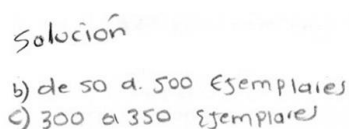 Solución
b) de 50 a. 500 Esemplares
c) 300 a 350 Esemplares